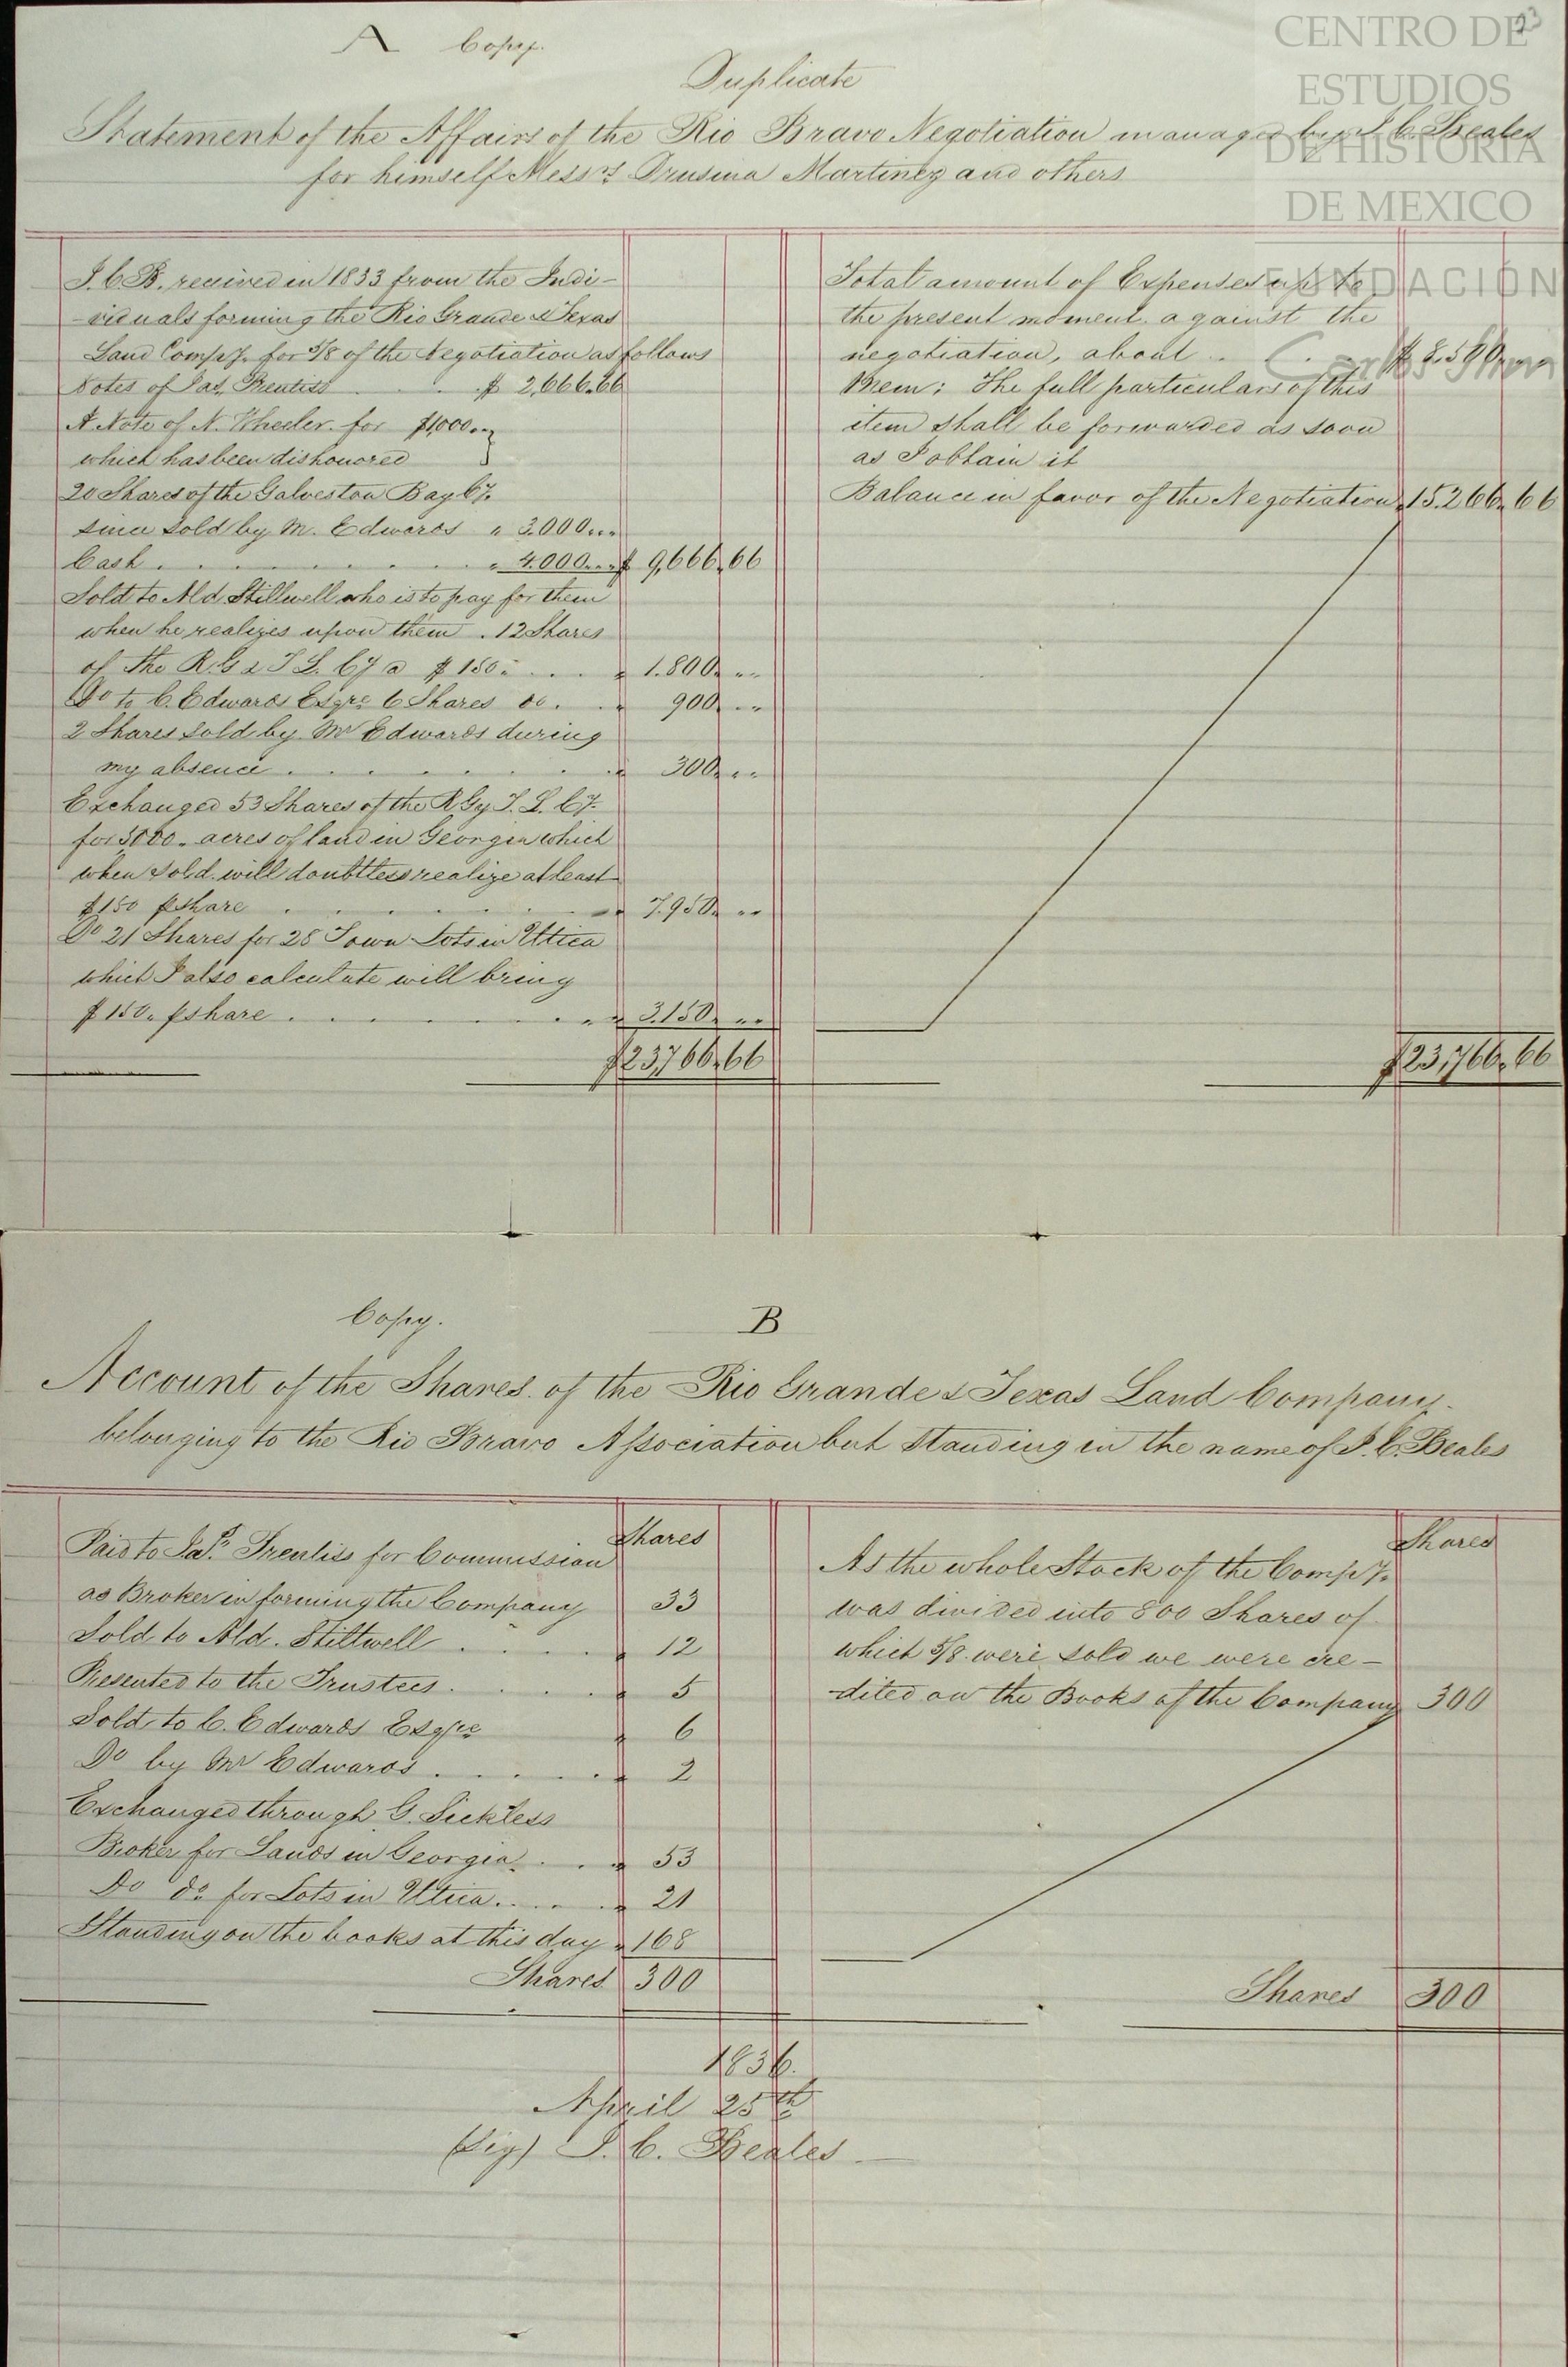 A Copy.
Duplicate
Statement of the Affairs of the Rio Bravo Negotiation managed by J. C. Beales
for himself Mess.rs Drusina Martinez and others
J. C. B. received in 1833 from the Indi-
-viduals forming the Rio Grande & Texas
Land Compy. for 5/8 of the Negotiation as follows
Notes of Jas. Prentiss . . . $ 2,666.66
A Note of N. Wheeler for $1,000..
which has been dishonored
20 Shares of the Galveston Bay Cy.
since sold by M. Edwards " 3.000...
Cash . . . . . . . . " 4.000... $ 9,666.66
Sold to Ald Stillwell who is to pay for them
when he realizes upon them . 12 Shares
of the R. G & T L. Cy @ $ 150 . . . " 1.800 " "
Do to C. Edwards Esqre 6 Shares do . . " 900 " "
2 Shares sold by Mr Edwards during
my absence . . . . . . . . " 300 " "
Exchanged 53 Shares of the R Gy T. L. Cy.
for 5000 . acres of land in Georgia which
when sold will doubtless realize at least
$150 p share . . . . . . . " 7.950 " "
Do 21 Shares for 28 Town Lots in Utica
which I also calculate will bring
$ 150. p share . . . . . . . " 3.150 " "
$23,766.66
Total amount of Expenses up to
the present moment against the
negotiation, about . . . $ 8.500 " "
Mem: The full particulars of this
item shall be forwarded as soon
as I obtain it
Balance in favor of the Negotiation " 15.266.66
$23,766.66
Copy. B
Account of the Shares of the Rio Grande & Texas Land Company
belonging to the Rio Bravo Association but standing in the name of J. C. Beales
Shares
Paid to Jas. Prentiss for Commission
as Broker in forming the Company 33
Sold to Ald. Stillwell . . . " 12
Presented to the Trustees . . . " 5
Sold to C. Edwards Esqre " 6
Do by Mr Edwards . . . . " 2
Exchanged through G. Sickless
Broker for Lands in Georgia . . " 53
Do do for Lots in Utica . . . " 21
Standing on the books at this day " 168
Shares 300
Shares
As the whole Stock of the Compy.
was divided into 800 Shares of
which 5/8 were sold we were cre-
-dited on the Books of the Company 300
Shares 300
1836.
April 25th
(Sig) J. C. Beales
CENTRO DE
ESTUDIOS
DE HISTORIA
DE MEXICO
FUNDACIÓN
Carlos Slim